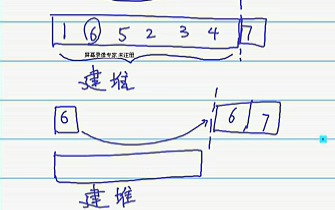 1 6 5 2 3 4 7
屏幕录像专家 未注册
建堆
6 6 7
建堆